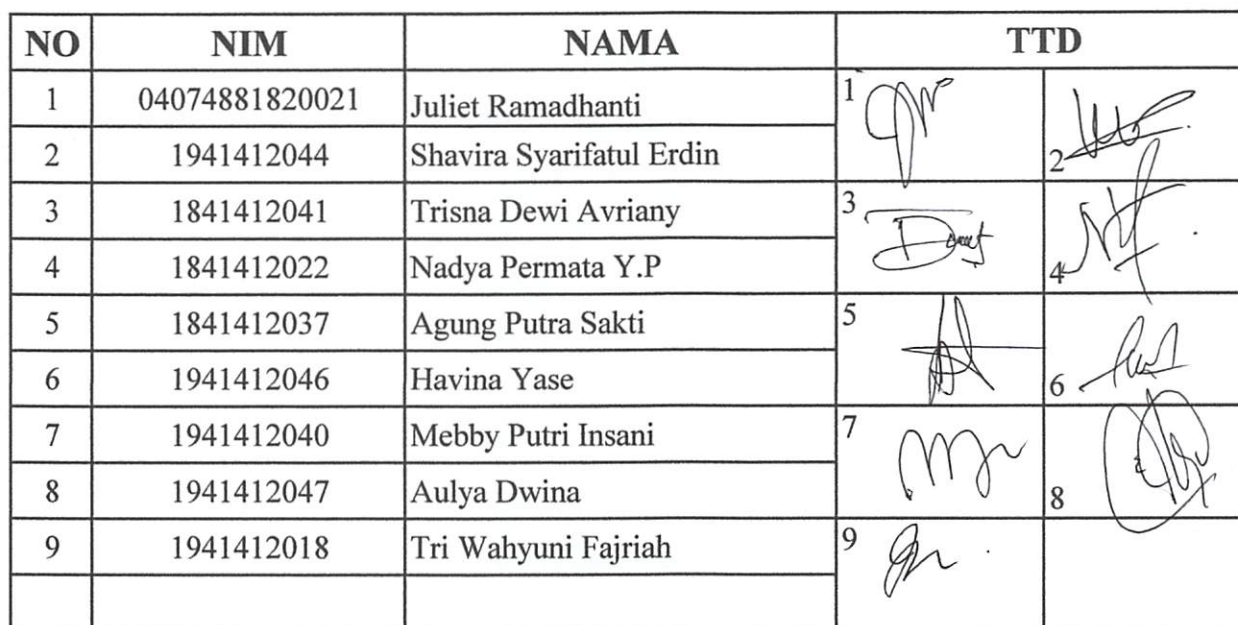 NO NIM NAMA TTD
1 04074881820021 Juliet Ramadhanti 1
2 1941412044 Shavira Syarifatul Erdin 2
3 1841412041 Trisna Dewi Avriany 3
4 1841412022 Nadya Permata Y.P 4
5 1841412037 Agung Putra Sakti 5
6 1941412046 Havina Yase 6
7 1941412040 Mebby Putri Insani 7
8 1941412047 Aulya Dwina 8
9 1941412018 Tri Wahyuni Fajriah 9